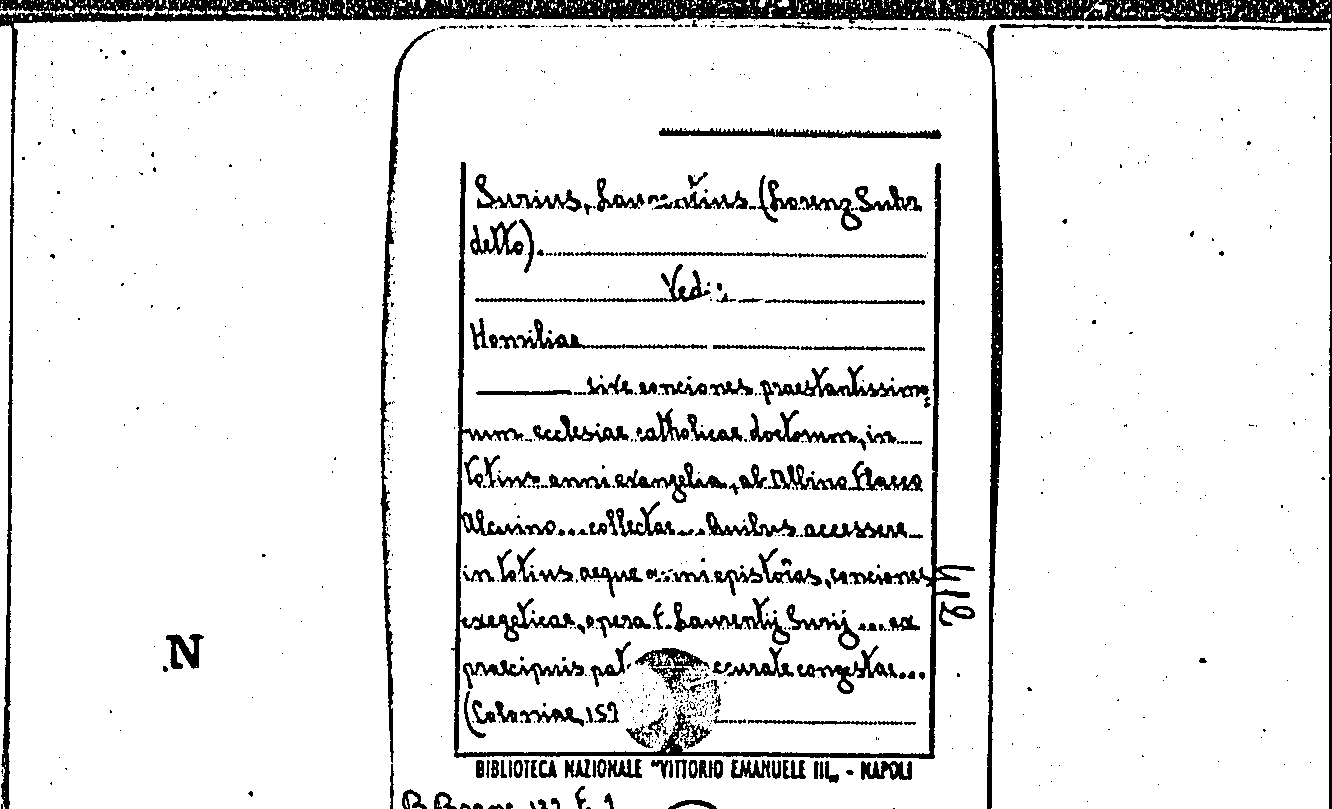 Surius, Laurentius (Lorenz Suhr
detto).
Vedi:
Homiliae
sive conciones praestantissimo=
rum ecclesiae catholicae doctorum, in
totius anni evangelia, ab Albino Flacco
Alcuino... collectae... Quibus accessere
in totius aeque anni epistolas, conciones
exegeticae, opera F. Laurentij Surij... ex
praecipuis pat ccurate congestae...
(Coloniae, 15
BIBLIOTECA NAZIONALE "VITTORIO EMANUELE III„ - NAPOLI
N